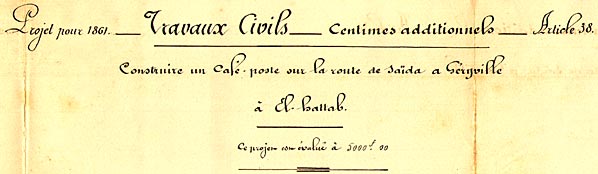 Projet pour 1861. — Travaux Civils — Centimes additionnels — Article 38.
Construire un Café-poste sur la route de Saïda a Géryville
à El-hattab.
Ce projet est évalué à 5000f. 00